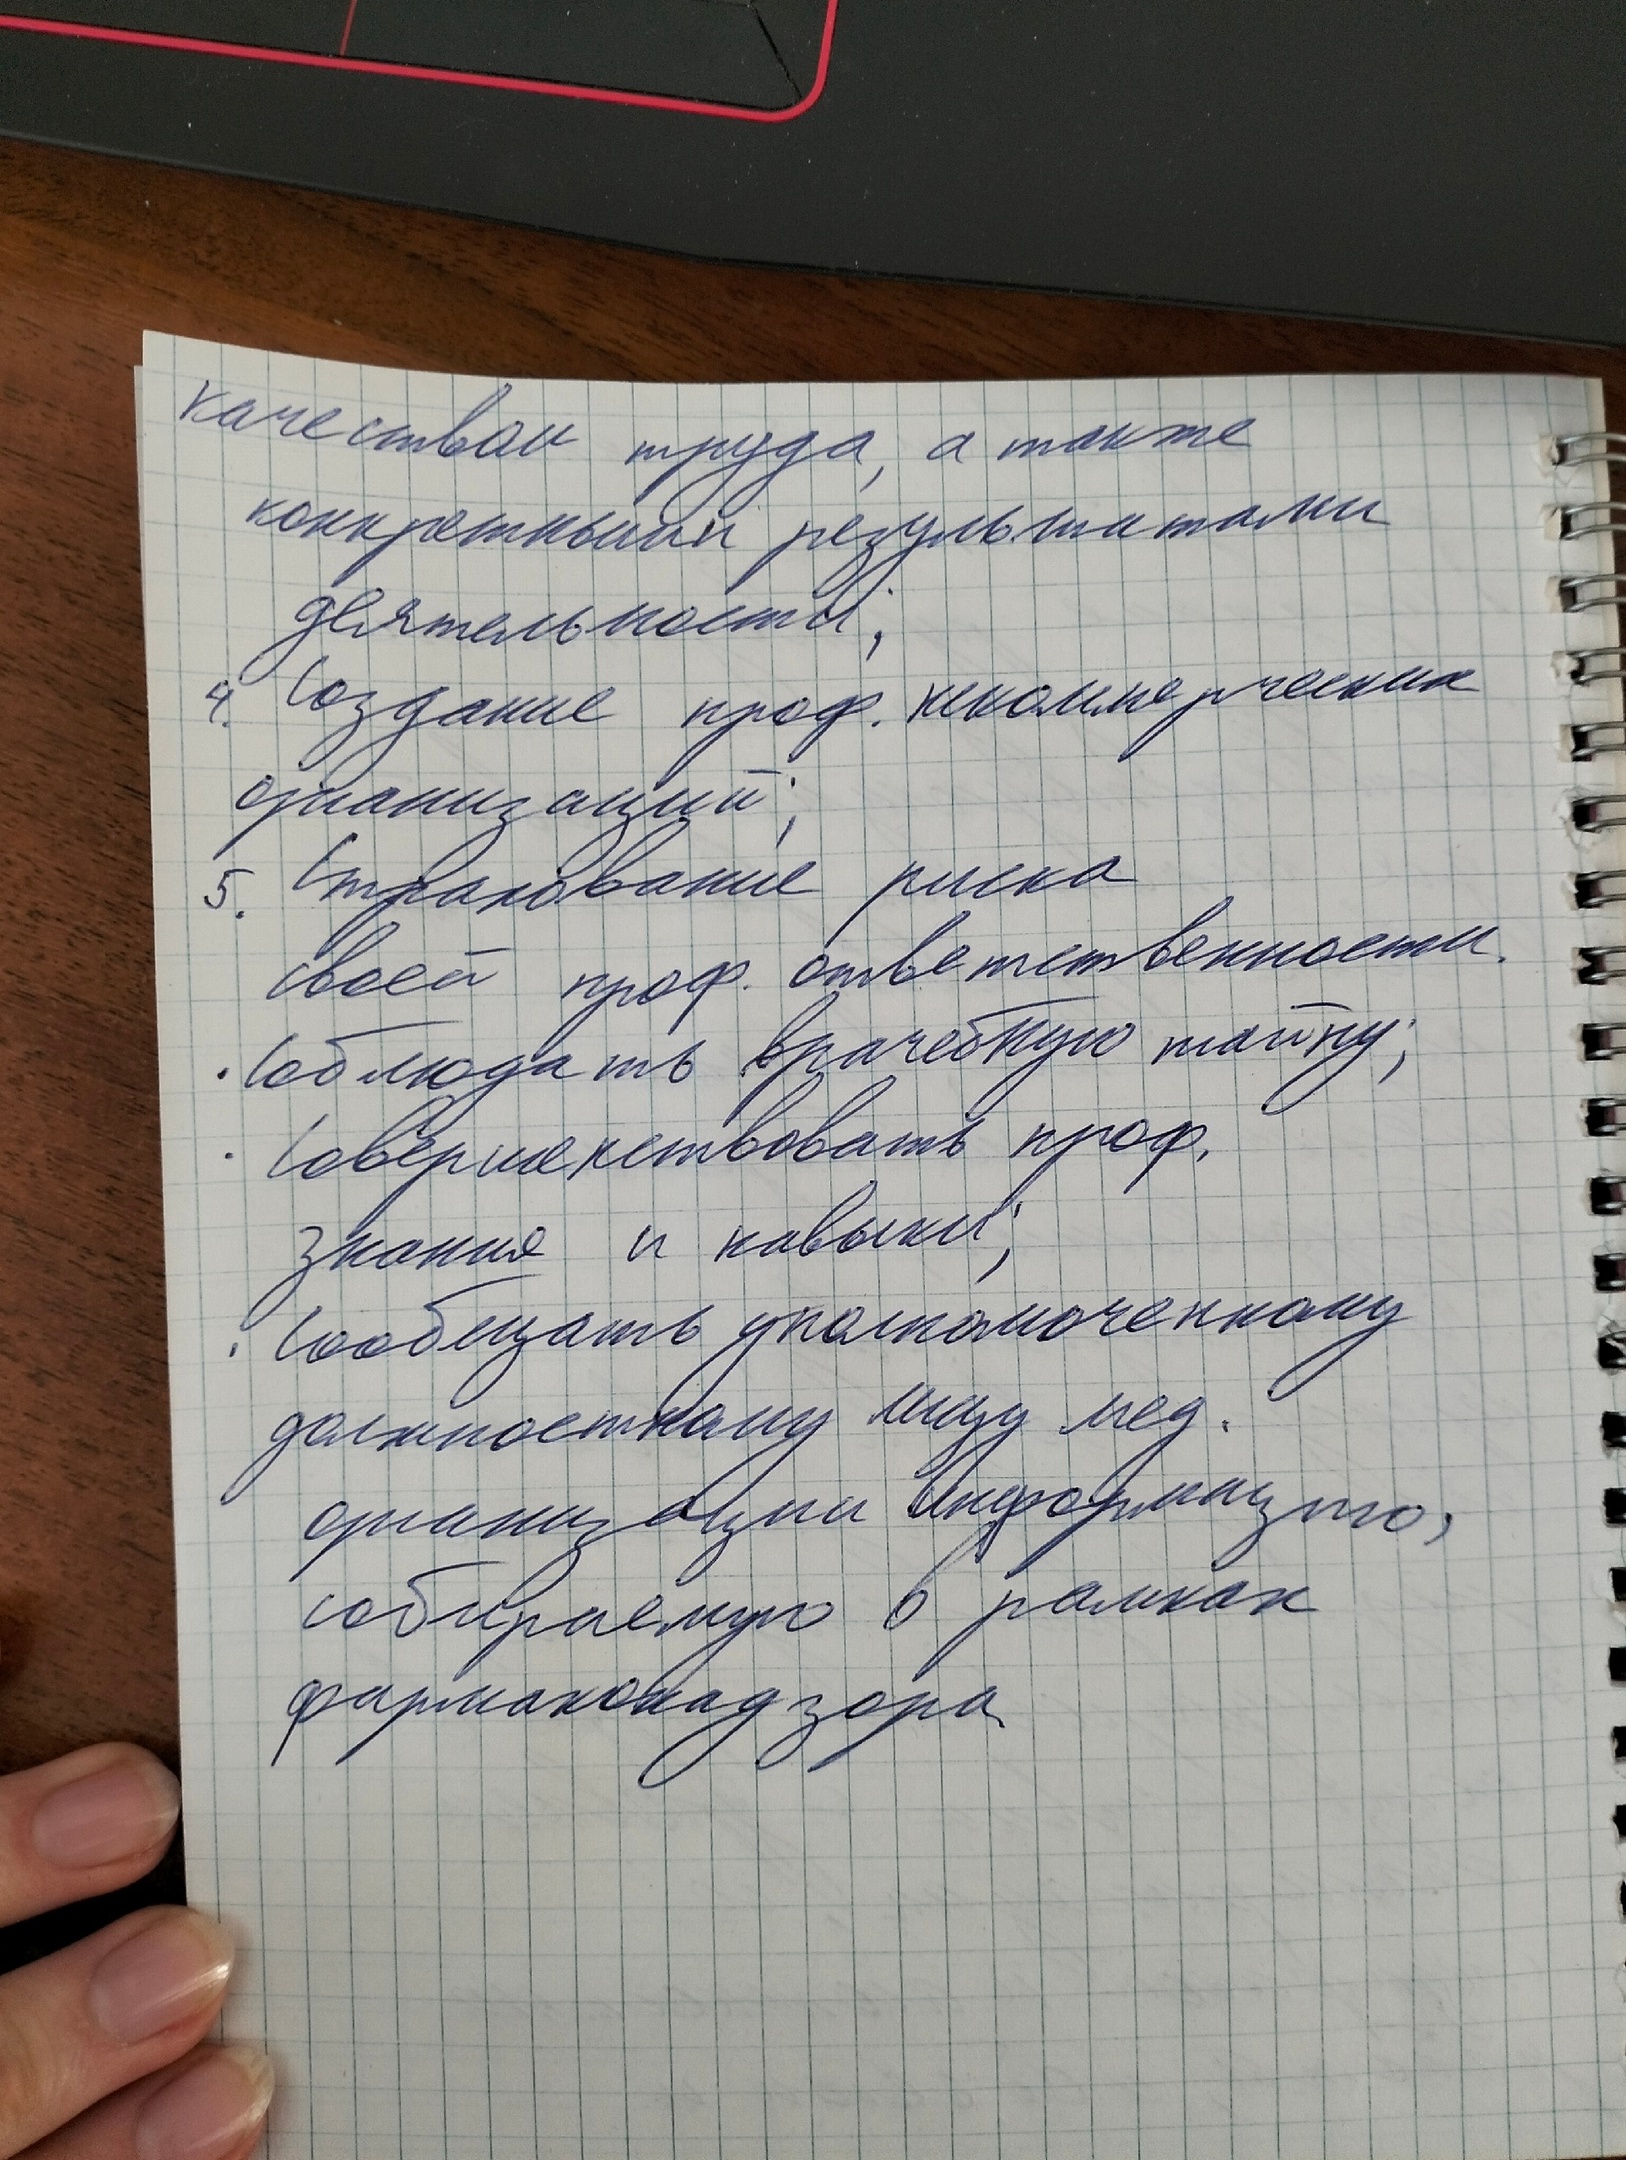 качеством труда, а также
конкретными результатами
деятельности;
4. Создание проф. некоммерческих
организаций;
5. Страхование риска
своей проф. ответственности.
· Соблюдать врачебную тайну;
· Совершенствовать проф.
знания и навыки;
· Сообщать уполномоченному
должностному лицу мед.
организации информацию,
собираемую в рамках
фармаконадзора